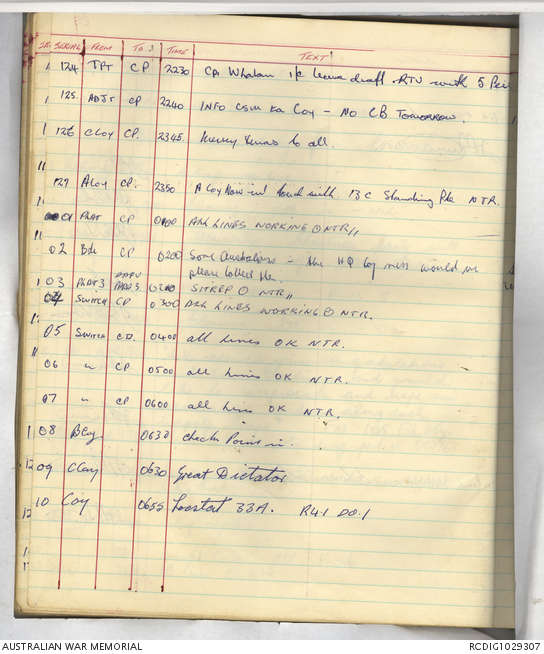 SERIAL FROM TO TIME TEXT
124 TPT CP 2230 Cpl Whalan i/c leave draft RTU with 5 Per
125 ADJT CP 2240 INFO CSM Ka Coy - NO CB TOMORROW.
126 C Coy CP. 2345 Merry Xmas to all.
127 A Coy CP. 2350 A Coy Now in touch with 13 C Standing Ptl NTR.
01 CP 0100 ALL LINES WORKING O NTR //
02 Bde CP 0200 Some Australians - the HQ Coy mess would
please collect
03 0200 SITREP O NTR //
04 SWITCH CP 0300 ALL LINES WORKING O NTR.
05 SWITCH CP. 0400 all lines OK NTR.
06 " CP 0500 all lines OK NTR.
07 " CP 0600 all lines OK NTR.
08 B Coy 0630 check Point in.
09 C Coy 0630 Great Dictator
10 Coy 0655 Locstat 33A. R4.1 D0.1
AUSTRALIAN WAR MEMORIAL RCDIG1029307